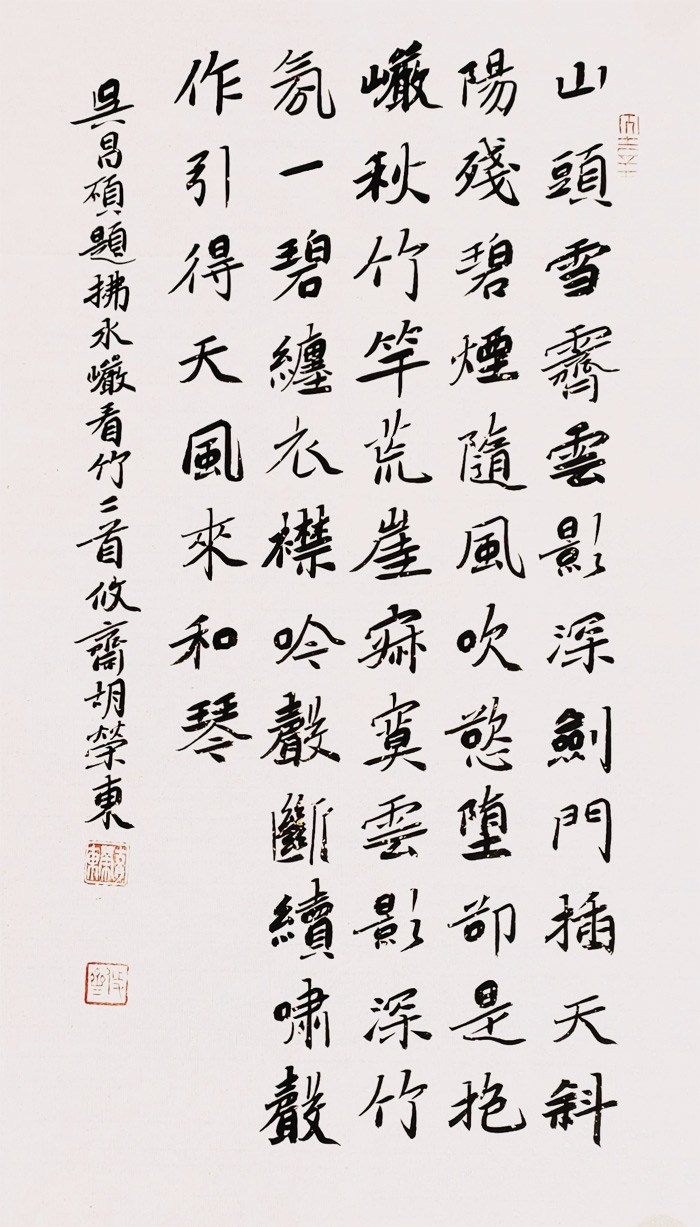 山頭雪霽雲影深劍門插天斜
陽殘碧煙隨風吹慾堕卻是抱
巗秋竹竿荒崖寂寞雲影深竹
氛一碧纏衣襟吟聲斷續嘯聲
作引得天風來和琴
吳昌碩題拂水巗看竹二首攸齋胡榮東